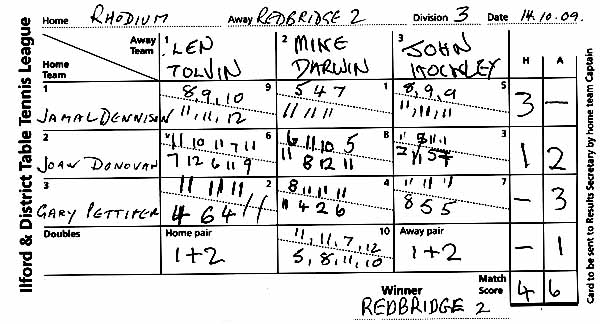 Ilford & District Table Tennis League
Home RHODIUM Away REDBRIDGE 2 Division 3 Date 14.10.09.
Away Team
Home Team
1 LEN TOLVIN
2 MIKE DARWIN
3 JOHN HOCKLEY
H A
1 JAMAL DENNISON
8, 9, 10 9
11, 11, 12
5 4 7 1
11 11 11
8, 9, 9 5
11, 11, 11
3 -
2 JOAN DONOVAN
11 10 11 7 11 6
7 12 6 11 9
6 11 10 5 8
11 8 12 11
3
1 2
3 GARY PETTIFER
11 11 11 11 2
4 6 4
8 11 11 11 4
11 4 2 6
11 11 11 7
8 5 5
- 3
Doubles
Home pair
1+2
10
11, 11, 7, 12
5, 8, 11, 10
Away pair
1+2
- 1
Winner
REDBRIDGE 2
Match Score
4 6
Card to be sent to Results Secretary by home team Captain